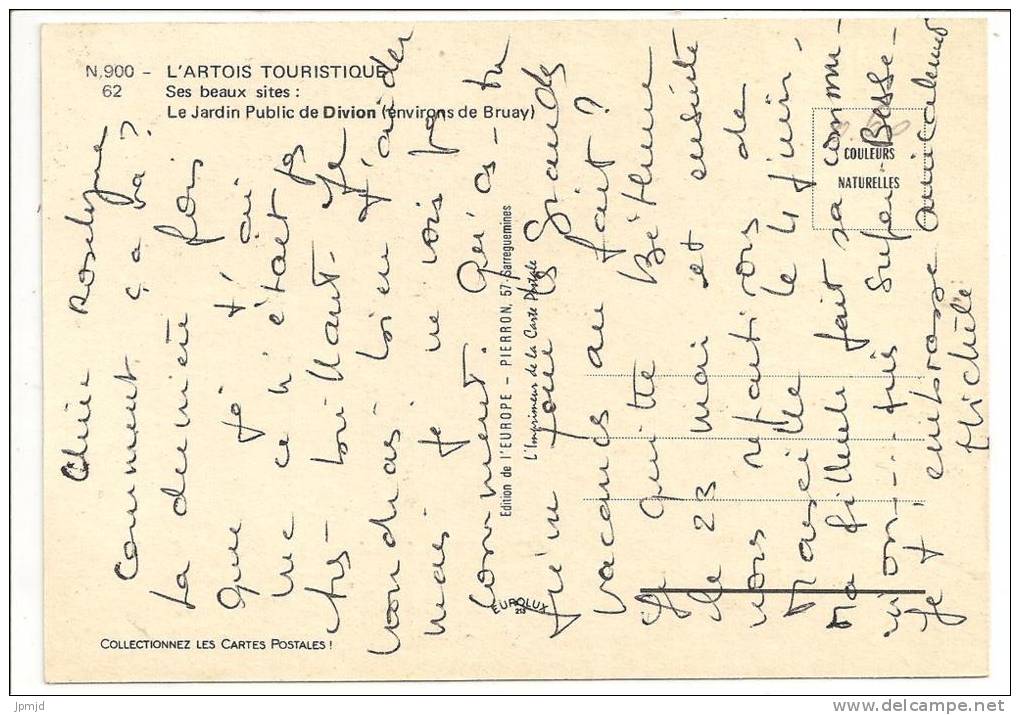 N.900 - L'ARTOIS TOURISTIQUE
62 Ses beaux sites :
Le Jardin Public de Divion (environs de Bruay)
COULEURS
NATURELLES
Edition de l'EUROPE - PIERRON, 57-Sarreguemines
L'Imprimeur de la Carte Postale
EUROLUX
COLLECTIONNEZ LES CARTES POSTALES !
Chère Roselyne
Comment ça va ?
La dernière fois
que je t'ai
vue ce n'était pas
très brillant. Je
voudrais bien t'aider
mais je ne vois pas
comment. Qu'as-tu
pour les grandes
vacances au fait ?
Je quitte Béthune
le 23 mai et ensuite
nous repartirons de
Marseille le 4 juin
Ma filleule fait sa commu-
nion puis Super Besse.
Je t'embrasse amicalement
Michèle
jpmjd
delcampe.net